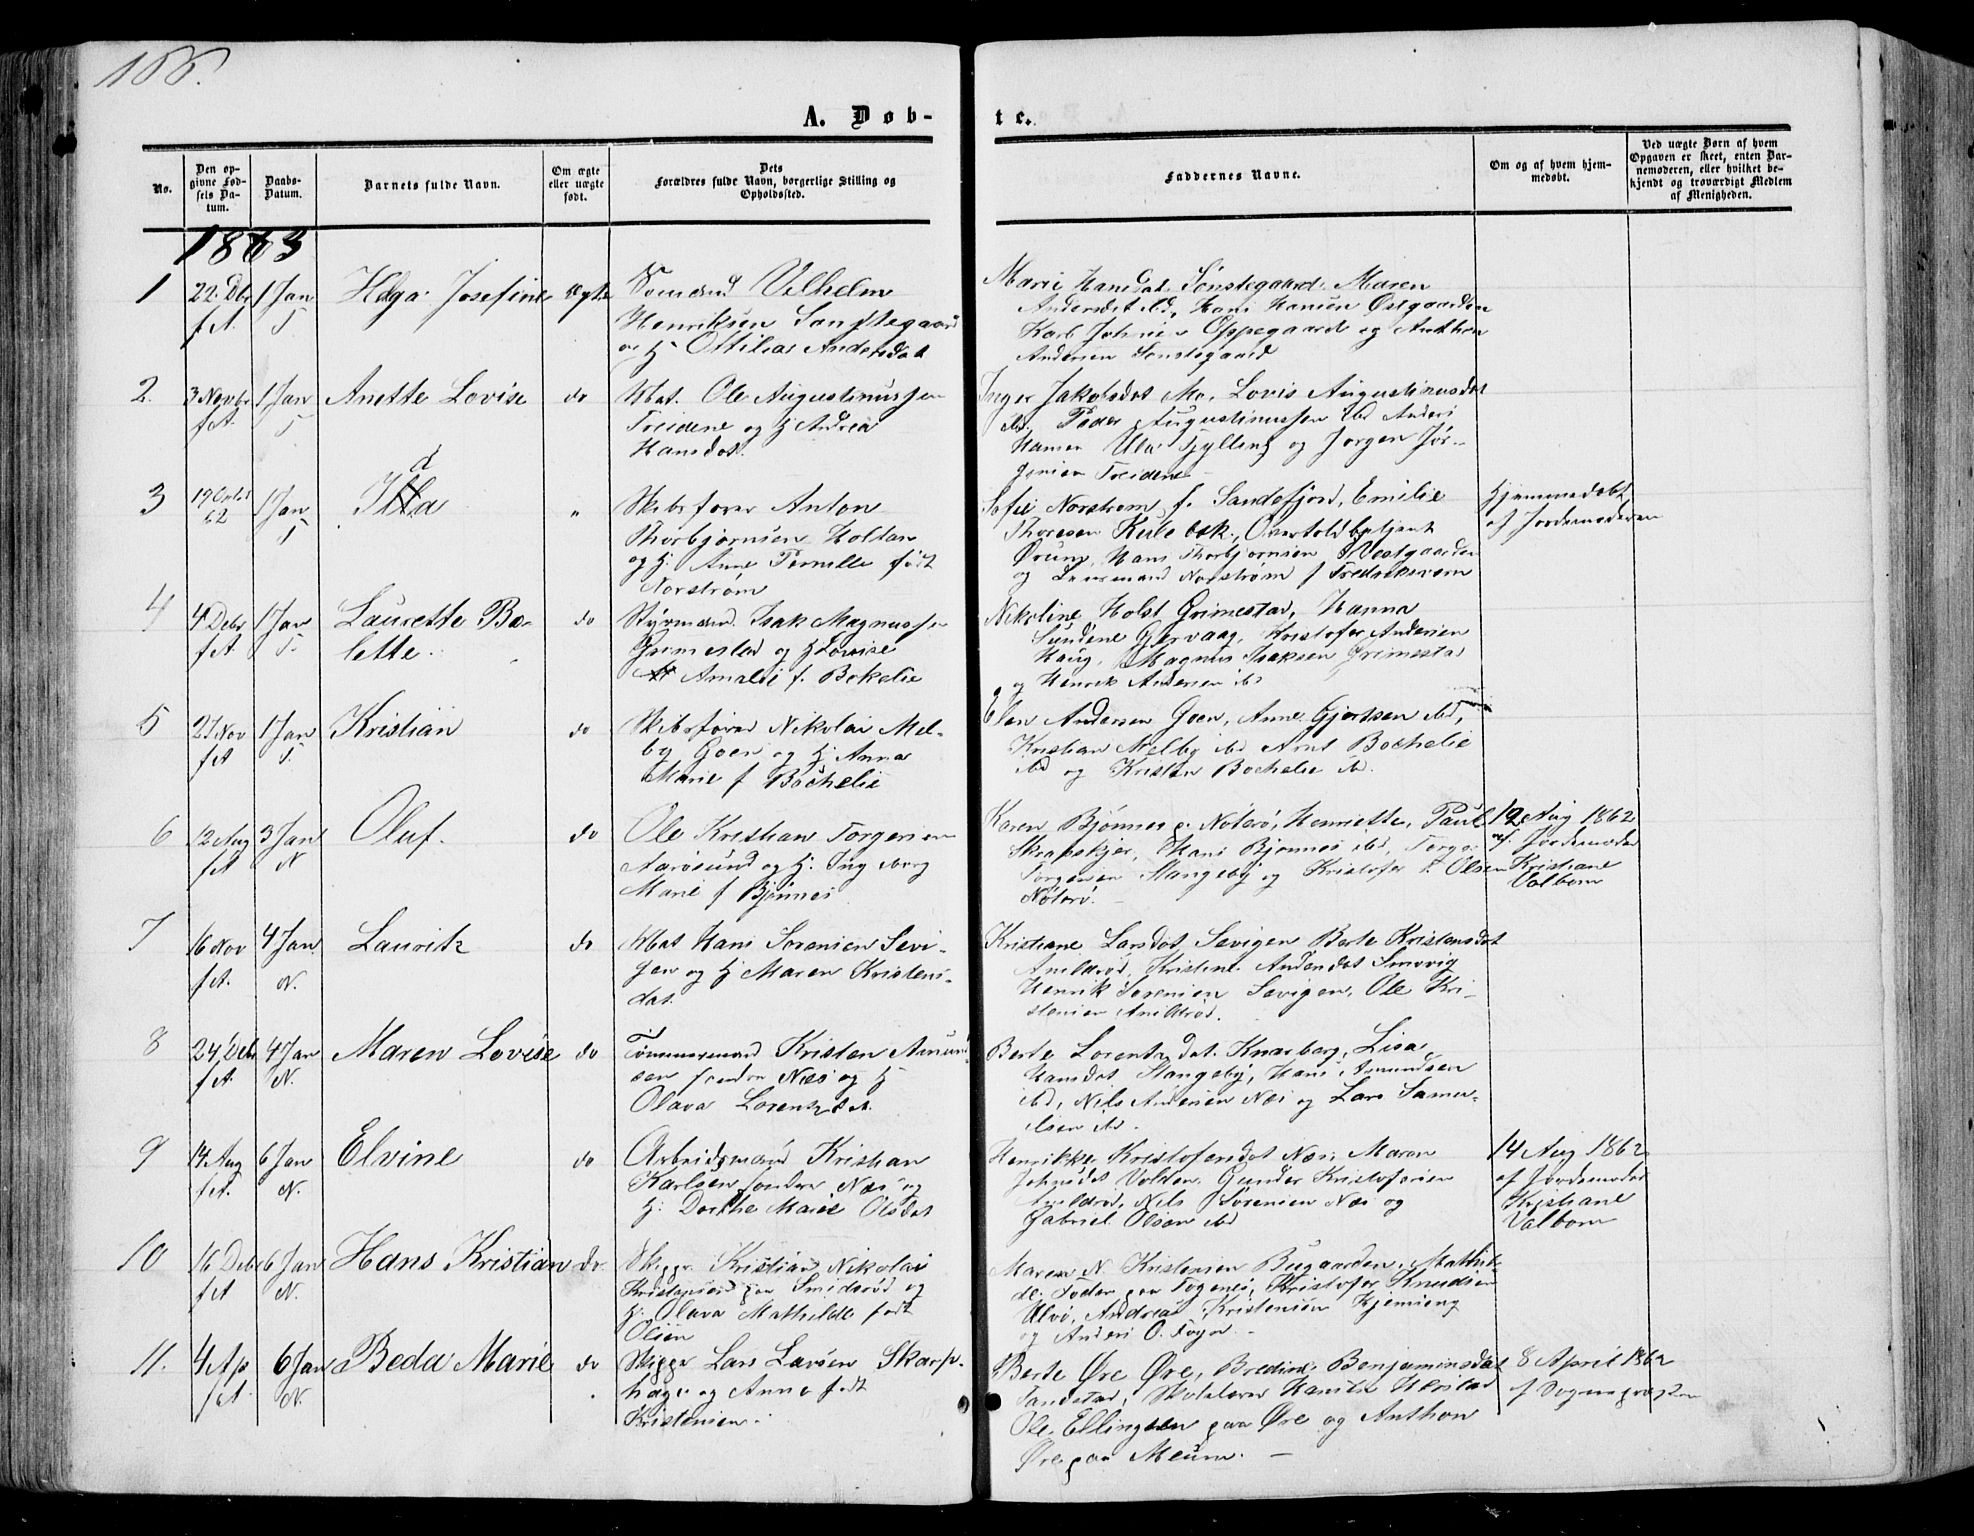 166.
A. Døb-
te.
No.
Den op-
givne Fød-
sels Da-
tum.
Daabs-
Datum.
Barnets fulde Navn.
Om ægte
eller uægte
født.
Dets
Forældres fulde Navn, borgerlige Stilling og
Opholdssted.
Faddernes Navne.
Om og af hvem hjem-
medøbt.
Ved uægte Børn af hvem
Opgaven er skeet, enten Bar-
nemoderen, eller hvilket be-
kjendt og troværdigt Medlem
af Menigheden.
1863
1 22. Dbr 1 Jan Helga Josefine ægte Sømand Vilhelm
f A. T Henriksen Sønstegaard
og H. Ottilia Andersdat
Marie Hansdat Sønstegaard, Maren
Andersdat ibd, Hans Hansen Østgaarden
Karl Johnsen Oppegaard og Anthon
Andersen Sønstegaard
2. 3 Novbr 1 Jan Anette Lovise do Mat. Ole Augustinussen
f A. T Treidene og H Andrea
Hansdat.
Inger Jakobsdat Mo, Lovis Augustinusdat
ibd. Peder Augustinussen ibd Anders
Hansen Ula Gylling og Jørgen Jør-
gensen Treidene
3 19 Octbr 1 Jan Ida " Skibsfører Anton
62 T Thorbjørnsen Holtan
og H. Anne Pernille født
Norstrøm
Sofie Norstrøm f. Sandefjord, Emilie
Thoresen Kulebæk, Overtoldbetjent
Ørum, Hans Thorbjørnsen Vestgaarden
og Norstrøm f Fredriksværn
Hjemmedøbt
af Jordemoderen
4 4 Debr 1 Jan Laurette Bo- do Styrmand Isak Magnussen
f A. T. lette. Grimestad og H Lovise
Amalie f. Bokelie
Nikoline Holst Grimestad, Hanna
Sundene Gervaag, Kristofer Andersen
Haug, Magnus Isaksen Grimestad
og Henrik Andersen ibd
5 27 Nov 1 Jan Kristian do Skibsfører Nikolai Mel-
f A T. by Goen og H Anna
Marie f Bøchelie
Elen Andersen Goen, Anne Gjertsen ibd,
Kristian Melby ibd Arnt Bochelie
ibd og Kristen Bochelie ibd.
6 12 Aug 3 Jan Oluf. do Ole Kristian Torgersen
f A N Aarøsund og H. Ingeborg
Marie f Bjønnes
Karen Bjønnes p. Nøterø, Henriette, Paul
Skrapskjer, Hans Bjønnes ibd, Torger
Torgersen Stangeby og Kristofer T. Olsen
Nøterø.
12 Aug 1862
af Jordemoder
Kristiane
Valbom
7 16 Nov 4 Jan Lauritz do Mat Hans Sørensen Sevi-
f A. N. gen og H Maren Kristens-
dat.
Kristiane Larsdat Sevigen Berte Kristensdat
Arildrød, Kristine Andersdat Smovig
Henrik Sørensen Sevigen, Ole Kri-
stensen Arildrød.
8 24 Debr 4 Jan Maren Lovise do Tømmermand Kristen Amund-
f A. N. sen søndre Næs og H
Olava Lorentzdat.
Berte Lorentzdat Knarberg, Lisa
Hansdat Stangeby, Hans Amundsen
ibd, Nils Andersen Næs og Lars Samu-
elsen ibd.
9 14 Aug 6 Jan Elvine do Arbeidsmand Kristian
f A. N. Karlsen søndre Næs og
H. Dorthe Marie Olsdat
Henrikke Kristofersdat Næs, Maren
Johnsdat Volden, Gunder Kristofersen
Arildrød, Nils Sørensen Næs og
Gabriel Olsen ibd
14 Aug 1862
af Jordemoder
Kristiane
Valbom
10 16 Debr 6 Jan Hans Kristian do. Skippr. Kristian Nikolai
f A N. Kristensen paa Smidsrød og
H. Olava Mathilde født
Olsen
Maren N. Kristensen Bugaarden, Mathil-
de paa Togenes, Kristofer Knudsen
Ulvø, Andreas Kristensen Kjerning
og Anders O. Føyn.
11. 4 Ap 6 Jan Beda Marie do Skippr Lars Larsen Skarp-
f A. N. hage og Anne født
Kristensen.
Berte Øre Øre, Bredine Benjaminsdat
Sandstad, Skolelærer
Ole Ellingsen paa Øre og Anthon
Øre paa Meum. —
8 April 1862
af Sognepræsten